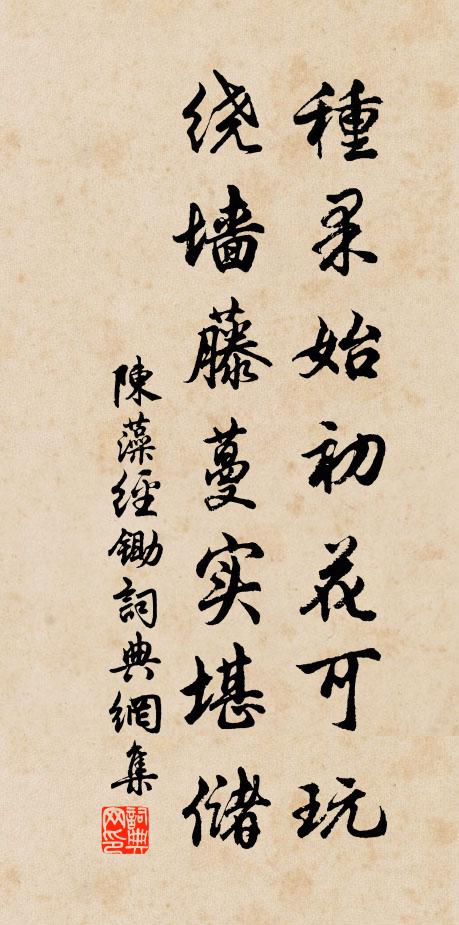 種果始初花可玩
绕墙藤蔓实堪储
陳藻經鋤詞典網集
詞典
网印